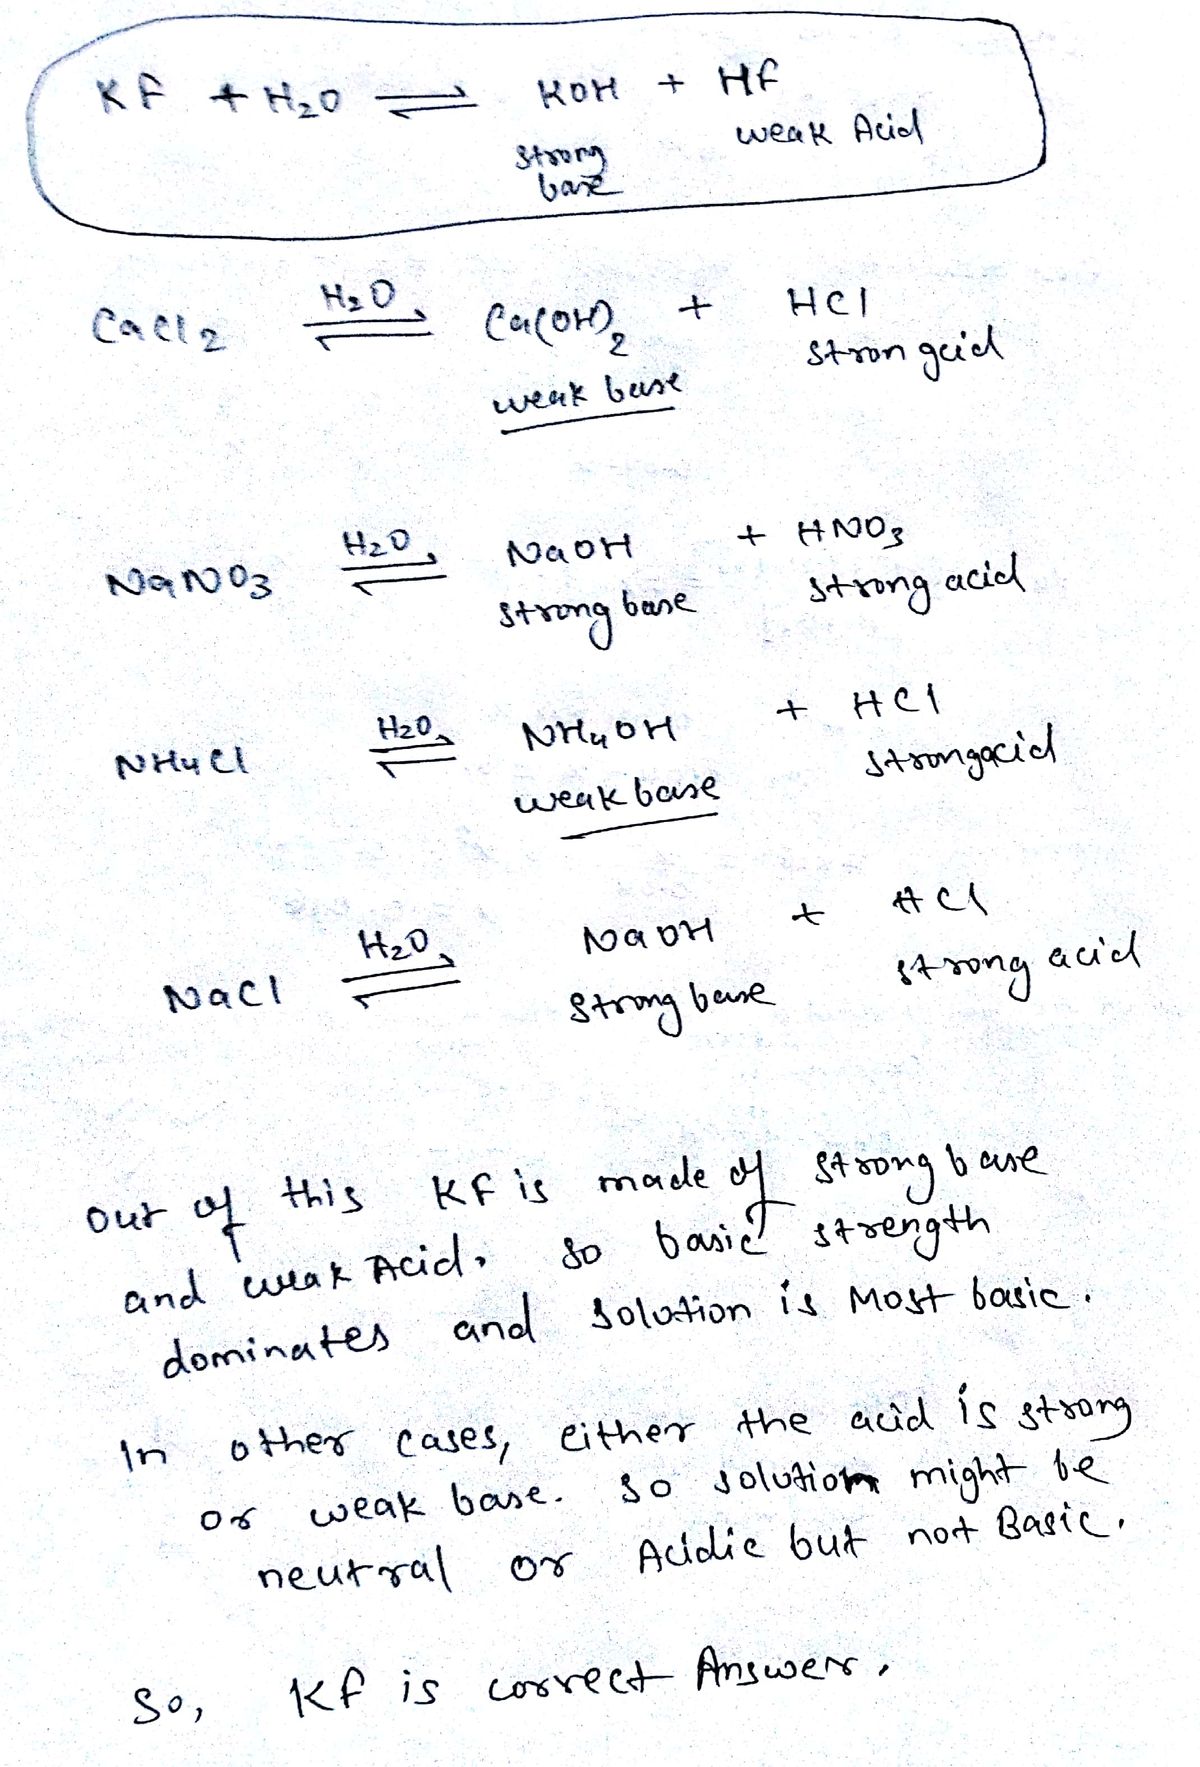 KF + H2O ⇌ KOH + HF
strong base weak Acid
CaCl2 H2O ⇌ Ca(OH)2 + HCl
weak base strongacid
NaNO3 H2O ⇌ NaOH + HNO3
strong base strong acid
NH4Cl H2O ⇌ NH4OH + HCl
weak base strongacid
NaCl H2O ⇌ NaOH + HCl
strong base strong acid
out of this KF is made of strong base
and weak Acid. so basic strength
dominates and solution is Most basic.
In other cases, either the acid is strong
or weak base. so solution might be
neutral or Acidic but not Basic.
So, KF is correct Answer.